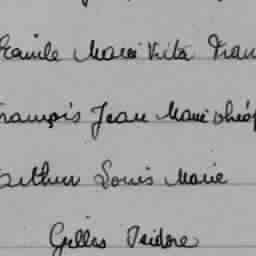 Camile Marie Vita Fran
François Jean Marie Théop
Arthur Louis Marie
Gilles Isidore